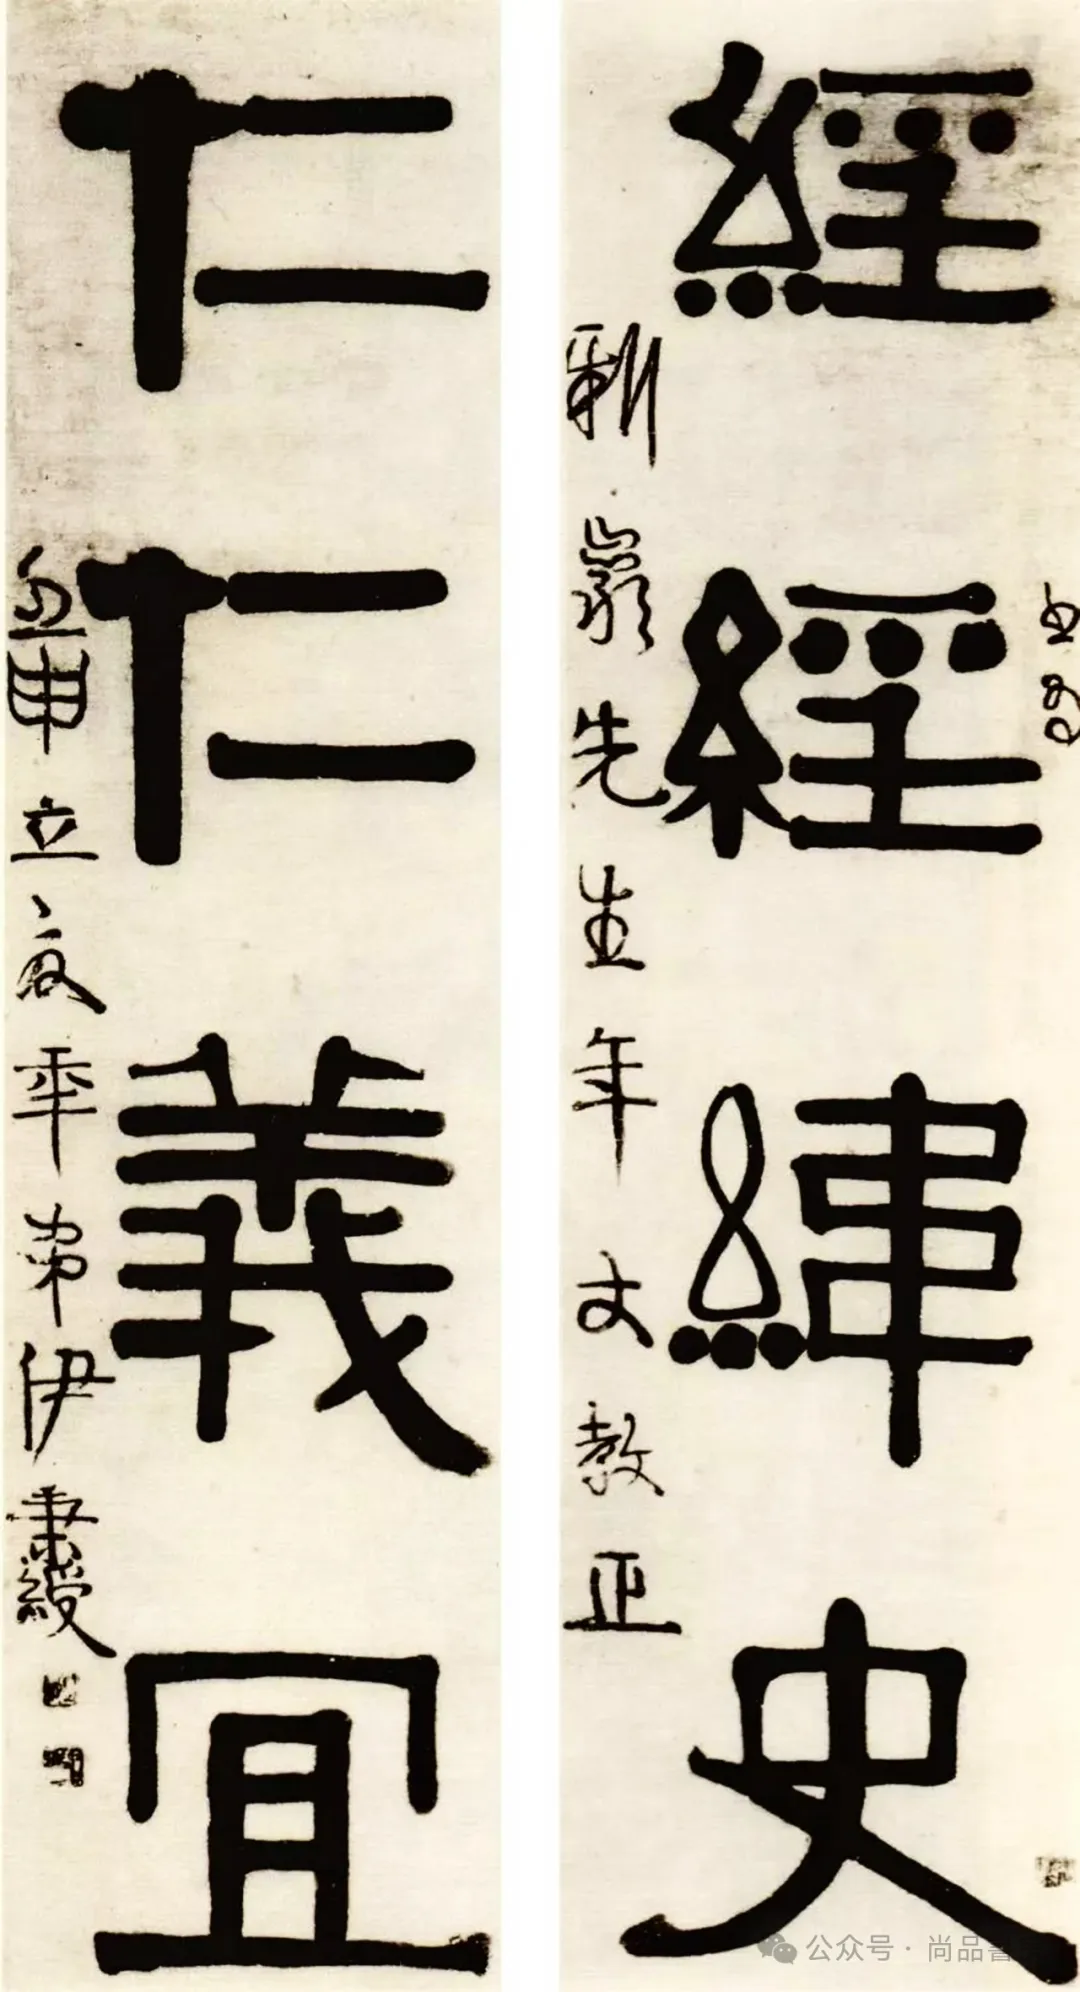 書為
經經緯史
巖先生年丈教正
仁仁義宜
申立夏年弟伊秉綬
公众号 · 尚品